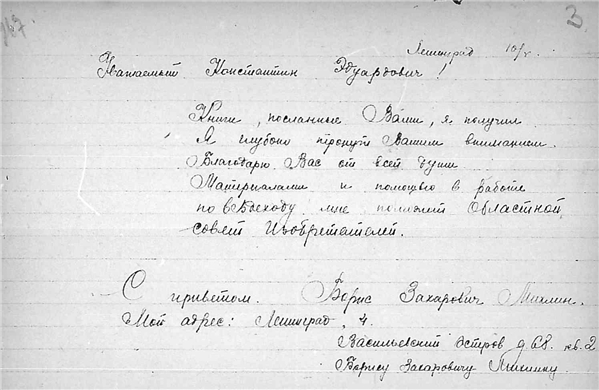 167
3
Ленинград 10/V.
Уважаемый Константин Эдуардович!
Книги, посланные Вами, я получил
Я глубоко тронут Вашим вниманием.
Благодарю Вас от всей души
Материалами и помощью в работе
по вездеходу мне помогает Областной
совет Изобретателей.
С приветом. Борис Захарович
Мой адрес: Ленинград, 4.
Васильевский Остров д 68. кв. 2
Борису Захаровичу